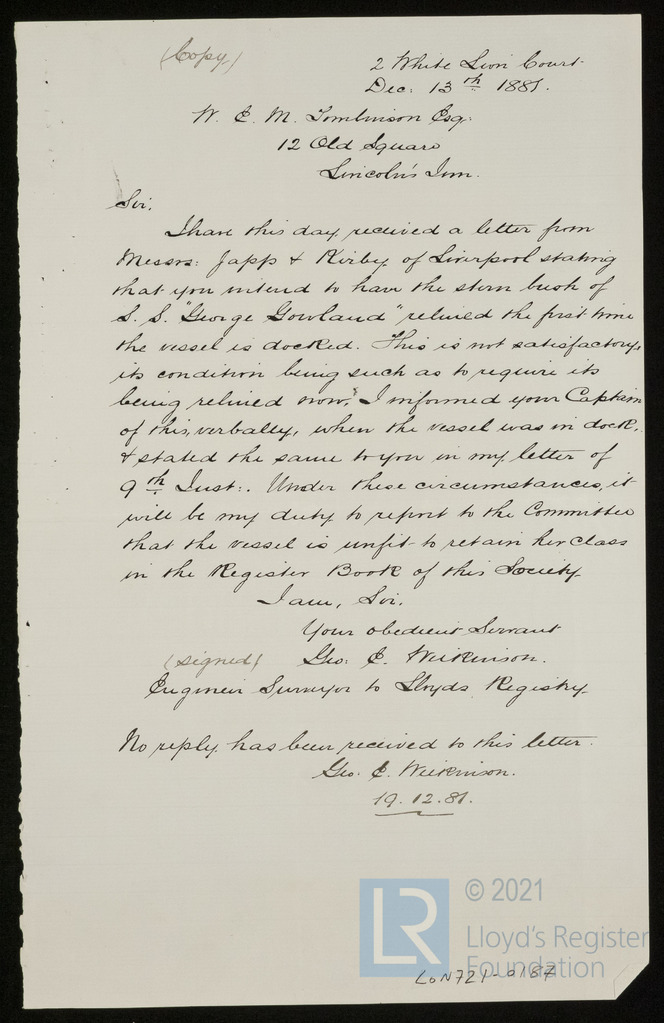 (Copy)
2 White Lion Court.
Dec: 13th 1881.
W. E. M. Tomlinson Esq:
12 Old Square
Lincoln's Inn.
Sir,
I have this day received a letter from
Messrs: Japp & Kirby of Liverpool stating
that you intend to have the stern bush of
S. S. "George Gowland" relined the first time
the vessel is docked. This is not satisfactory,
its condition being such as to require its
being relined now. I informed your Captain
of this, verbally, when the vessel was in dock,
& stated the same to you in my letter of
9th Inst:. Under these circumstances, it
will be my duty to report to the Committee
that the vessel is unfit to retain her class
in the Register Book of this Society.
I am, Sir,
Your obedient Servant
(signed) Geo: E. Wilkinson.
Engineer Surveyor to Lloyds Registry.
No reply has been received to this letter.
Geo. E. Wilkinson.
19.12.81.
LR
© 2021
Lloyd's Register
Foundation
LON721-0187